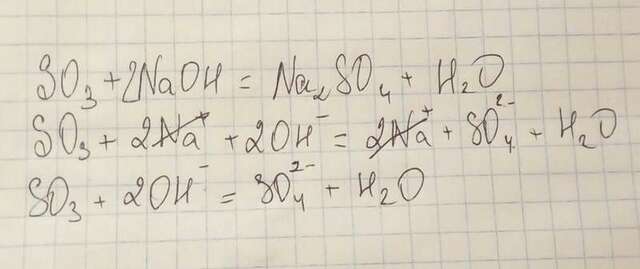 SO₃ + 2NaOH = Na₂SO₄ + H₂O
SO₃ + 2Na⁺ + 2OH⁻ = 2Na⁺ + SO₄²⁻ + H₂O
SO₃ + 2OH⁻ = SO₄²⁻ + H₂O